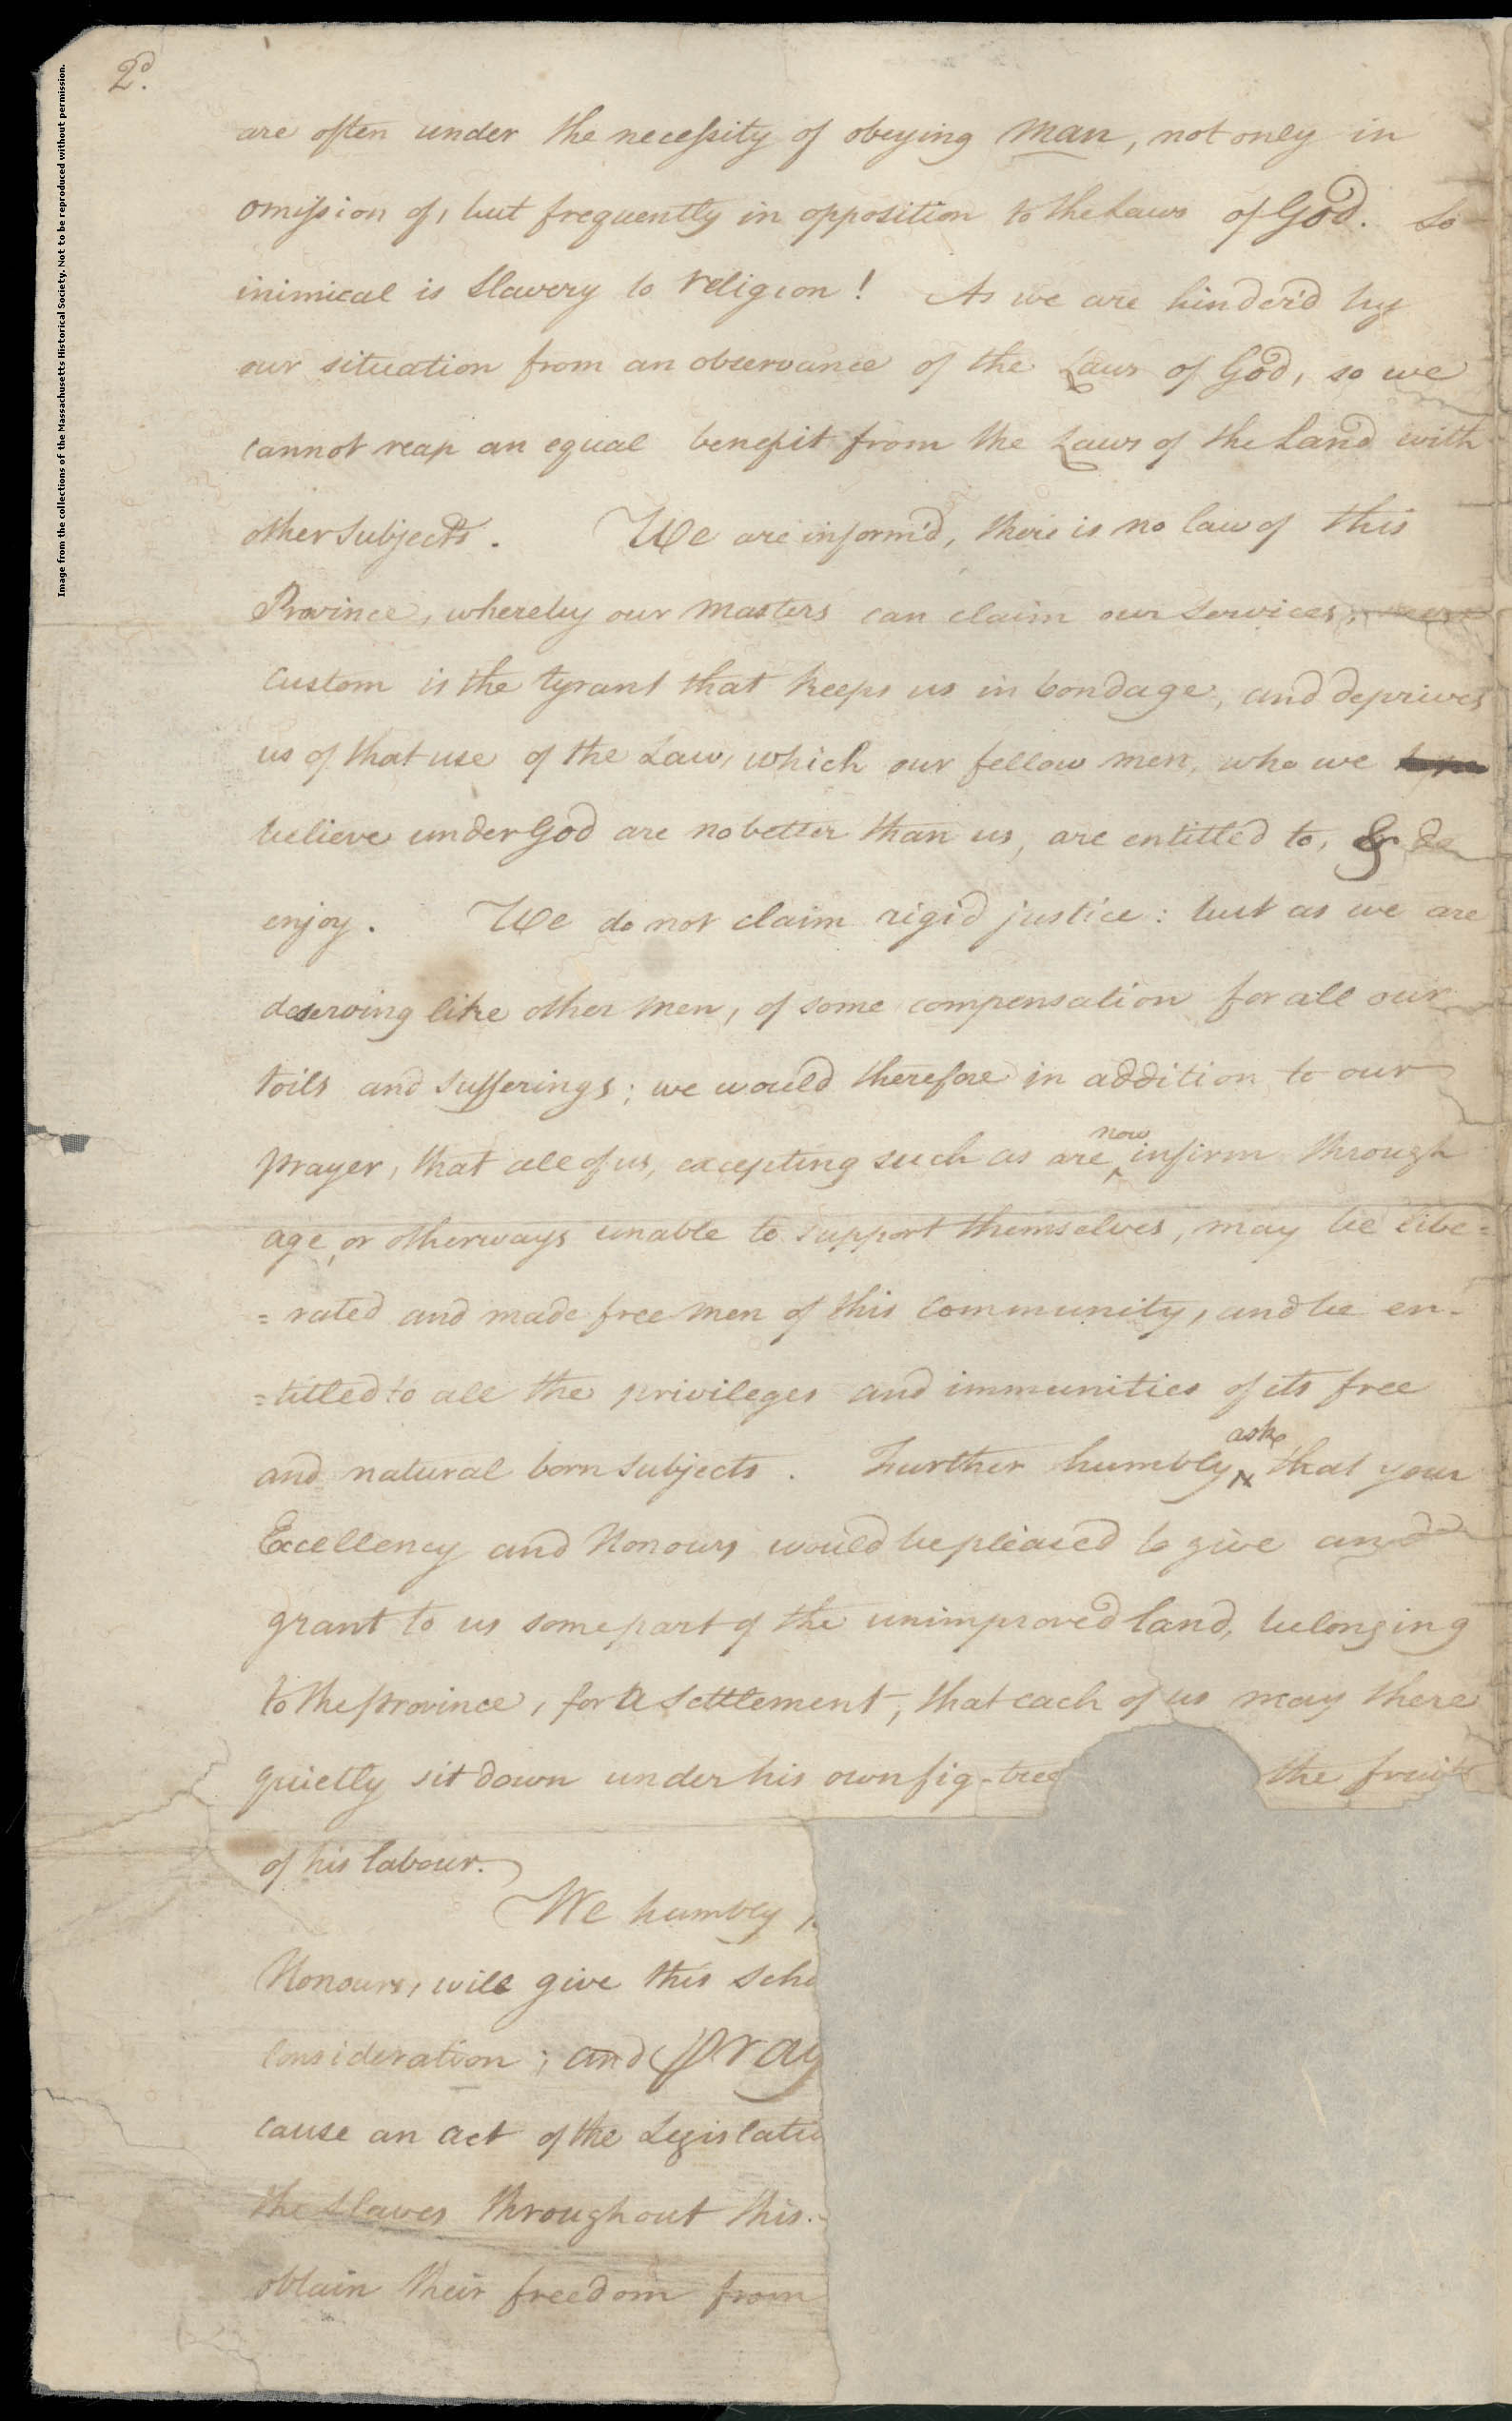 Image from the collections of the Massachusetts Historical Society. Not to be reproduced without permission.
2d.
are often under the necessity of obeying man, not only in
omission of, but frequently in opposition to the Laws of God. So
inimical is Slavery to religion! As we are hinder'd by
our situation from an observance of the Laws of God, so we
cannot reap an equal benefit from the Laws of the Land with
other Subjects. We are inform'd, there is no law of this
Province, whereby our Masters can claim our Services;
Custom is the tyrant that keeps us in bondage, and deprives
us of that use of the Law, which our fellow men, who we
believe under God are no better than us, are entitled to, & do
enjoy. We do not claim rigid justice: but as we are
deserving like other men, of some compensation for all our
toils and sufferings; we would therefore in addition to our
now
prayer, that all of us, excepting such as are infirm through
age, or otherways unable to support themselves, may be libe=
=rated and made free men of this Community, and be en-
=titled to all the privileges and immunities of its free
ask
and natural born subjects. Further humbly that your
Excellency and Honours would be pleased to give and
grant to us some part of the unimproved land, belonging
to the province, for a settlement, that each of us may there
quietly sit down under his own fig-tree the fruits
of his labour.
We humbly
Honours, will give this Sche
Consideration; and Pray
cause an act of the Legislatu
the slaves throughout this
obtain their freedom from